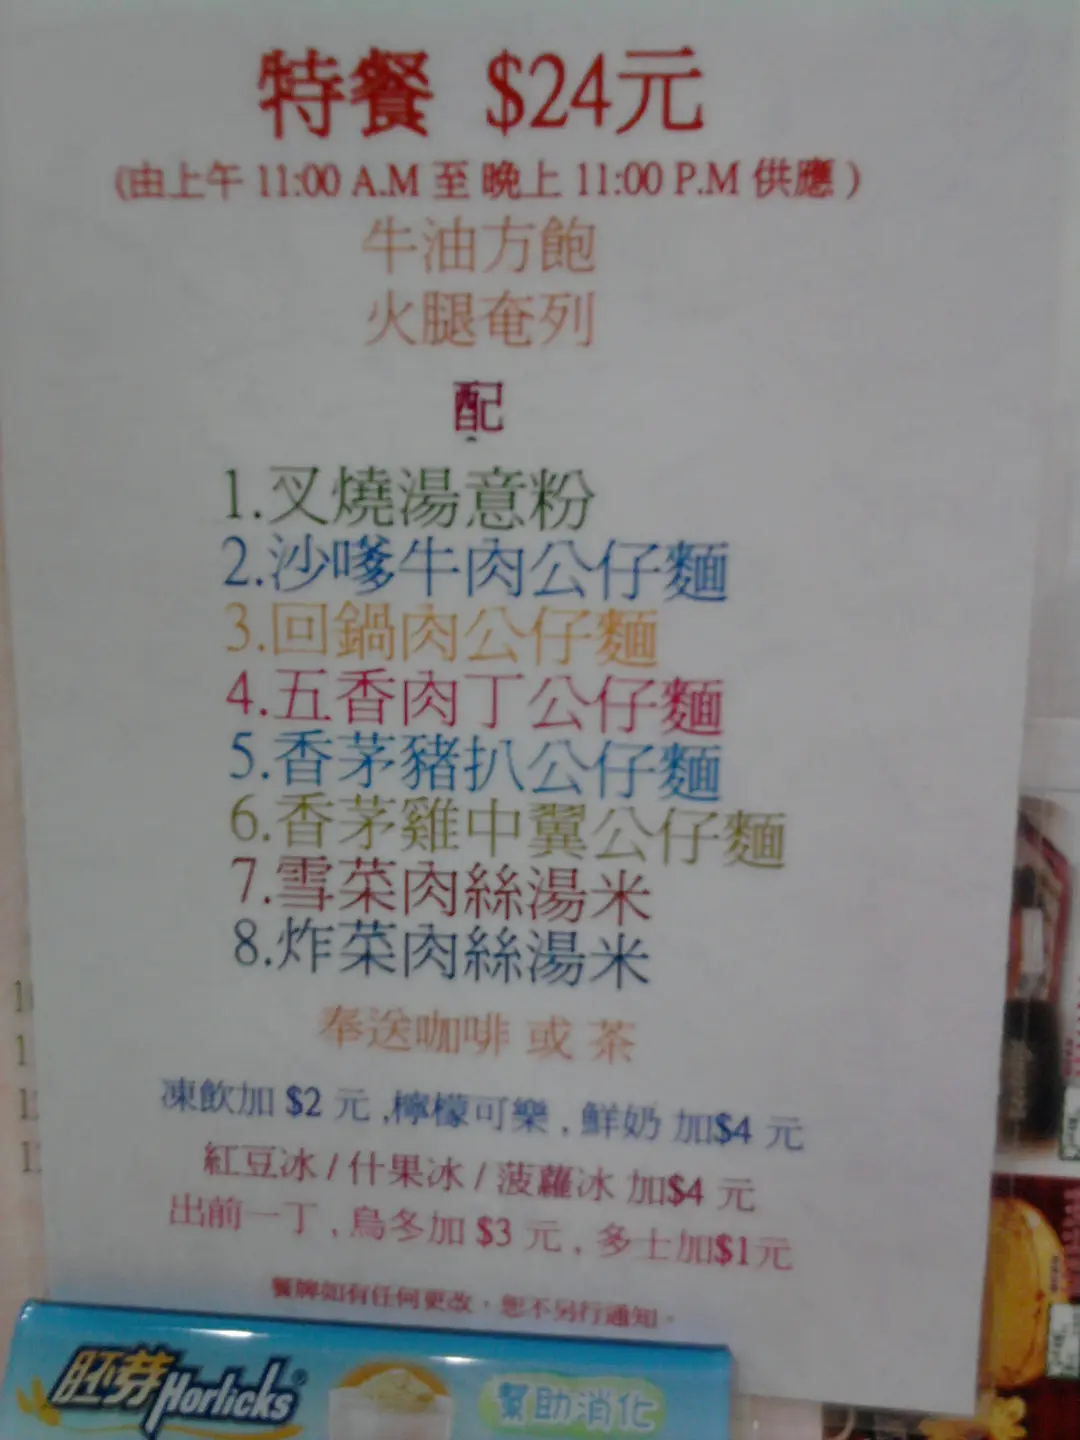 特餐 $24元
(由上午 11:00 A.M 至 晚上 11:00 P.M 供應 )
牛油方飽
火腿奄列
配
1.叉燒湯意粉
2.沙嗲牛肉公仔麵
3.回鍋肉公仔麵
4.五香肉丁公仔麵
5.香茅豬扒公仔麵
6.香茅雞中翼公仔麵
7.雪菜肉絲湯米
8.炸菜肉絲湯米
奉送咖啡 或 茶
凍飲加 $2 元 ,檸檬可樂 , 鮮奶 加$4 元
紅豆冰 / 什果冰 / 菠蘿冰 加$4 元
出前一丁 , 烏冬加 $3 元 , 多士加$1元
餐牌如有任何更改，恕不另行通知。
胚芽Horlicks®
幫助消化